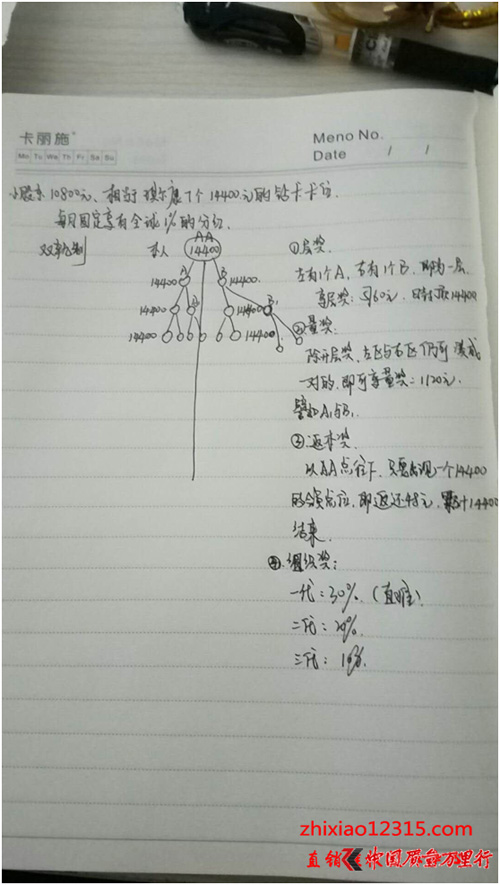 卡丽施
Meno No.
Mo Tu We Th Fr Sa Su
Date / /
小股东10800元、相当于 7个14400元的钻卡卡位
每月固定享有全球1%的分红
双轨制
本人
AA
14400
14400 A
B 14400
14400
14400 B1
14400
14400
①层奖
左有1个A,右有1个B,即为一层.
享层奖: 960元. 14400
②量奖
除开层奖,左区与右区仍可凑成
一对的,即可享量奖:1120元.
譬如A1与B1
③返本奖
以AA点往下,只要出现一个14400
的会员点位,即返还48元,累计14400
结束.
④组织奖:
一代:30%.(直推)
二代:20%.
三代:10%.
zhixiao12315.com
直销 中国质量万里行